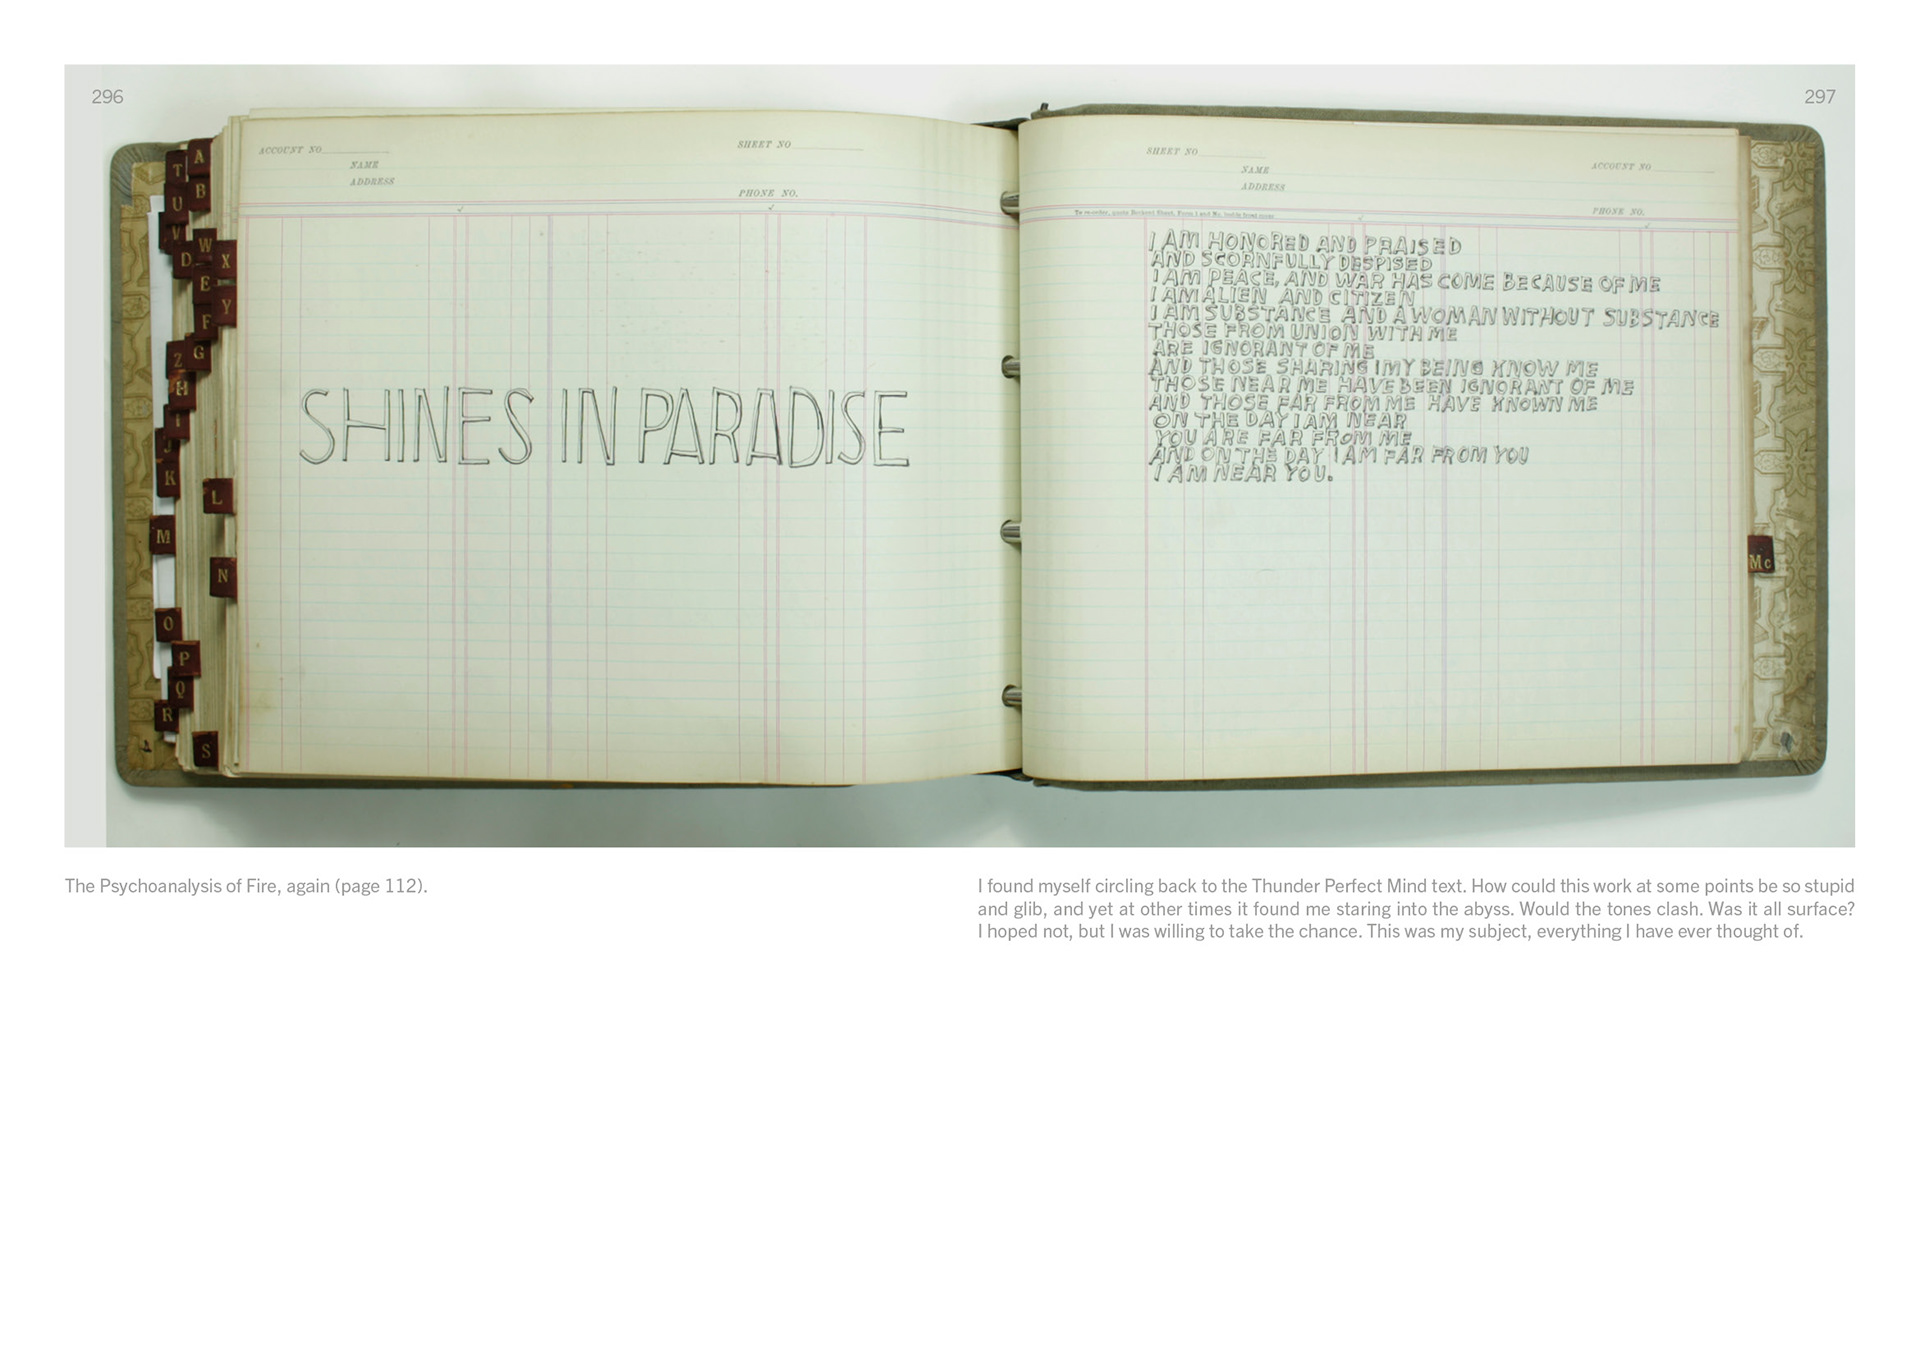 296
297
ACCOUNT NO
SHEET NO
NAME
ADDRESS
PHONE NO.
A
T
B
U
V
W
D
X
E
Y
F
G
Z
H
I
J
K
L
M
N
O
P
Q
R
S
SHINES IN PARADISE
SHEET NO
ACCOUNT NO
NAME
ADDRESS
PHONE NO.
To re-order, quote
I AM HONORED AND PRAISED
AND SCORNFULLY DESPISED
I AM PEACE, AND WAR HAS COME BECAUSE OF ME
I AM ALIEN AND CITIZEN
I AM SUBSTANCE AND A WOMAN WITHOUT SUBSTANCE
THOSE FROM UNION WITH ME
ARE IGNORANT OF ME
AND THOSE SHARING IMY BEING KNOW ME
THOSE NEAR ME HAVE BEEN IGNORANT OF ME
AND THOSE FAR FROM ME HAVE KNOWN ME
ON THE DAY I AM NEAR
YOU ARE FAR FROM ME
AND ON THE DAY I AM FAR FROM YOU
I AM NEAR YOU.
Mc
The Psychoanalysis of Fire, again (page 112).
I found myself circling back to the Thunder Perfect Mind text. How could this work at some points be so stupid
and glib, and yet at other times it found me staring into the abyss. Would the tones clash. Was it all surface?
I hoped not, but I was willing to take the chance. This was my subject, everything I have ever thought of.